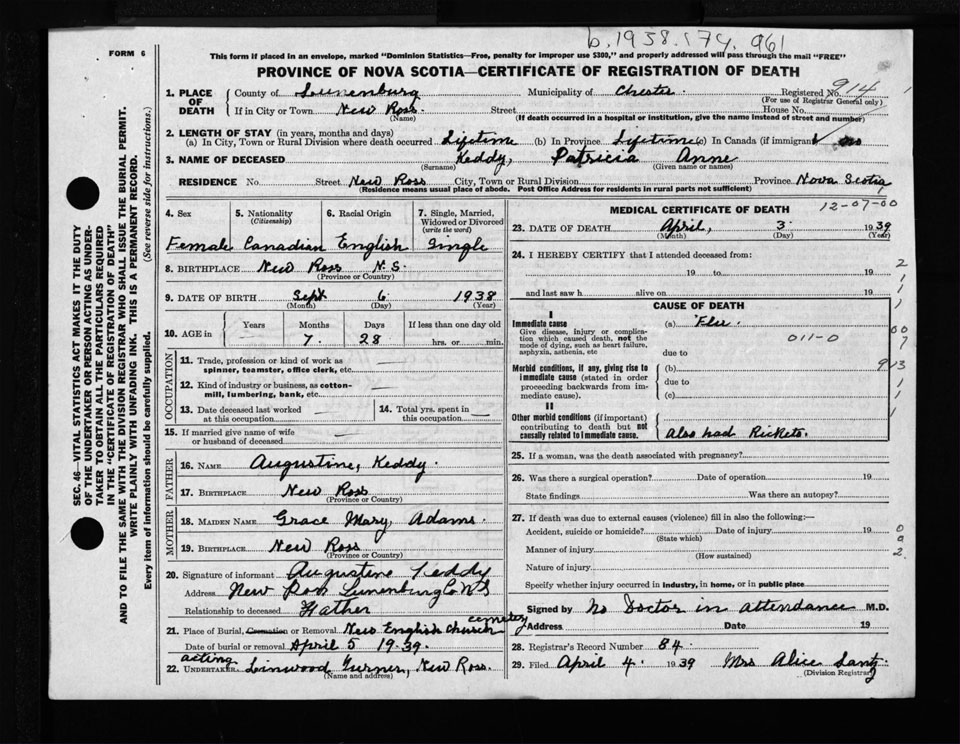 b. 1938. 174. 961
FORM 6
This form if placed in an envelope, marked "Dominion Statistics—Free, penalty for improper use $300," and properly addressed will pass through the mail "FREE"
PROVINCE OF NOVA SCOTIA—CERTIFICATE OF REGISTRATION OF DEATH
1. PLACE OF DEATH County of Lunenburg Municipality of Chester Registered No. 914
(For use of Registrar General only)
If in City or Town New Ross. Street House No.
(Name) (If death occurred in a hospital or institution, give the name instead of street and number)
2. LENGTH OF STAY (in years, months and days)
(a) In City, Town or Rural Division where death occurred Lifetime (b) In Province Lifetime (c) In Canada (if immigrant) no
3. NAME OF DECEASED Keddy, Patricia Anne
(Surname) (Given name or names)
RESIDENCE No. Street New Ross City, Town or Rural Division Province Nova Scotia
(Residence means usual place of abode. Post Office Address for residents in rural parts not sufficient)
4. Sex 5. Nationality (Citizenship) 6. Racial Origin 7. Single, Married, Widowed or Divorced (write the word)
Female Canadian English Single
8. BIRTHPLACE New Ross N.S.
(Province or Country)
9. DATE OF BIRTH Sept 6 1938
(Month) (Day) (Year)
10. AGE in Years Months Days If less than one day old
7. 28 hrs. or min.
OCCUPATION
11. Trade, profession or kind of work as spinner, teamster, office clerk, etc. —
12. Kind of industry or business, as cotton-mill, lumbering, bank, etc. —
13. Date deceased last worked at this occupation — 14. Total yrs. spent in this occupation —
15. If married give name of wife or husband of deceased —
FATHER
16. NAME Augustine, Keddy.
17. BIRTHPLACE New Ross
(Province or Country)
MOTHER
18. MAIDEN NAME Grace Mary, Adams.
19. BIRTHPLACE New Ross
(Province or Country)
20. Signature of informant Augustine Keddy
Address New Ross Lunenburg Co NS
Relationship to deceased Father
21. Place of Burial, Cremation or Removal New English Church cemetery
Date of burial or removal April 5 19 39.
acting
22. UNDERTAKER Linwood Turner, New Ross.
(Name and address)
MEDICAL CERTIFICATE OF DEATH 12-07-00
23. DATE OF DEATH April, 3 1939
(Month) (Day) (Year)
24. I HEREBY CERTIFY that I attended deceased from:
19 to 19
and last saw h alive on 19
CAUSE OF DEATH
I
Immediate cause (a) Flu.
Give disease, injury or complication which caused death, not the mode of dying, such as heart failure, asphyxia, asthenia, etc
011-0
due to
Morbid conditions, if any, giving rise to immediate cause (stated in order proceeding backwards from immediate cause). (b)
due to
(c)
II
Other morbid conditions (if important) contributing to death but not causally related to immediate cause. Also had Rickets.
25. If a woman, was the death associated with pregnancy?
26. Was there a surgical operation? Date of operation 19
State findings Was there an autopsy?
27. If death was due to external causes (violence) fill in also the following:—
Accident, suicide or homicide? Date of injury 19
(State which)
Manner of injury
(How sustained)
Nature of injury
Specify whether injury occurred in industry, in home, or in public place
Signed by No Doctor in attendance M.D.
Address Date 19
28. Registrar's Record Number 84.
29. Filed April 4. 1939 Mrs Alice Lantz
(Division Registrar)
SEC. 46—VITAL STATISTICS ACT MAKES IT THE DUTY
OF THE UNDERTAKER OR PERSON ACTING AS UNDER-
TAKER TO OBTAIN ALL THE PARTICULARS REQUIRED
IN THE "CERTIFICATE OF REGISTRATION OF DEATH"
AND TO FILE THE SAME WITH THE DIVISION REGISTRAR WHO SHALL ISSUE THE BURIAL PERMIT.
WRITE PLAINLY WITH UNFADING INK. THIS IS A PERMANENT RECORD.
Every item of information should be carefully supplied. (See reverse side for instructions.)